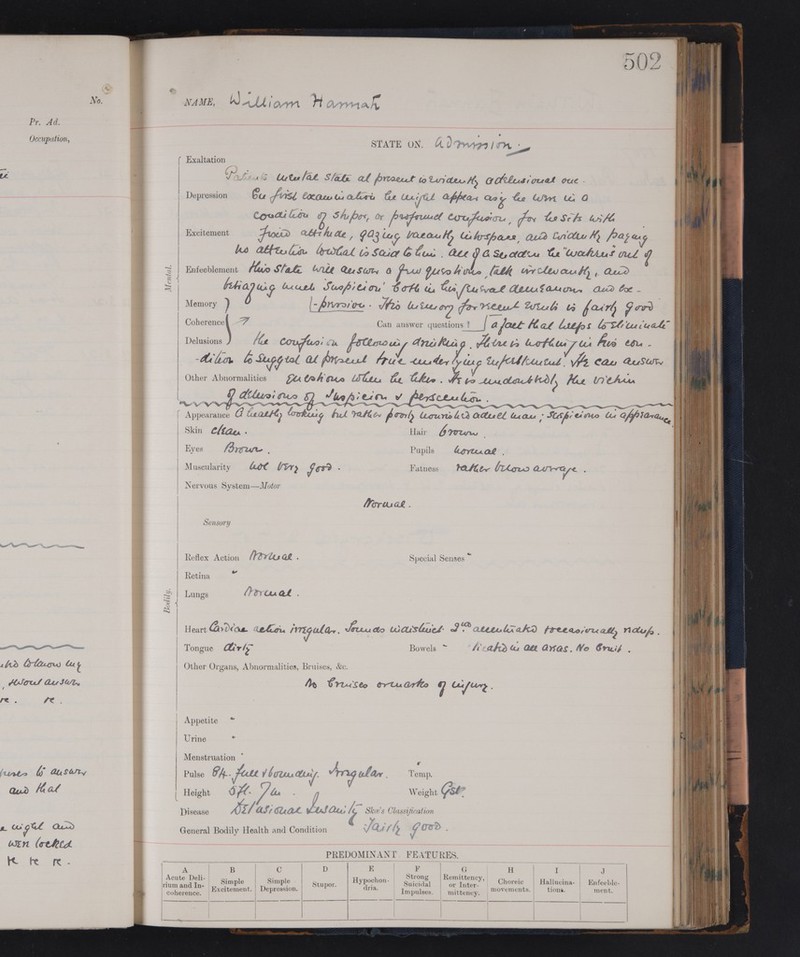 502
No.
Pr. Ad.
Occupation,
NAME, William Hannah
STATE ON. Admission.
Exaltation
Patient's mental state at present is evidently a delusional one.
Depression On first examination he might appear as if he were in a
condition of stupor, or profound confusion, for he sits with
Excitement fixed attitude, gazing vacantly into space, and evidently paying
no attention to what is said to him. All of a sudden he "wakens" out of
Enfeeblement this state will answer a few questions, talk irrelevantly, and
betraying much suspicion both in his general demeanour and ex-
Memory -pression. His memory for recent events is fairly good
Coherence Can answer questions? a fact that helps to eliminate
Delusions the confusion following drinking. There is nothing in his con-
-dition to suggest at present true underlying enfeeblement. He can answer
Other Abnormalities questions when he likes. He is undoubtedly the victim
of delusions of suspicion & persecution.
Mental.
Appearance A healthy looking but rather poorly nourished adult man; suspicious in appearance
Skin clean. Hair brown.
Eyes Brown. Pupils normal.
Muscularity not very good. Fatness rather below average.
Nervous System—Motor
Normal.
Sensory
Reflex Action Normal. Special Senses "
Retina "
Lungs Normal.
Bodily.
Heart Cardiac action irregular. Sounds indistinct 2nd accentuated & occasionally redup.
Tongue dirty Bowels
in all areas. No Bruit.
Other Organs, Abnormalities, Bruises, &c.
No Bruises or marks of injury.
Appetite "
Urine "
Menstruation
Pulse 84. full & bounding. Irregular. Temp.
Height 5ft. 7in. Weight 9st.
Disease Delusional Insanity Skae's Classification
General Bodily Health and Condition Fairly good.
PREDOMINANT FEATURES.
A B C D E F G H I J
Acute Delirium and Incoherence. Simple Excitement. Simple Depression. Stupor. Hypochondria. Strong Suicidal Impulses. Remittency, or Intermittency. Choreic movements. Hallucinations. Enfeeblement.
to answer
and that
might and
were locked